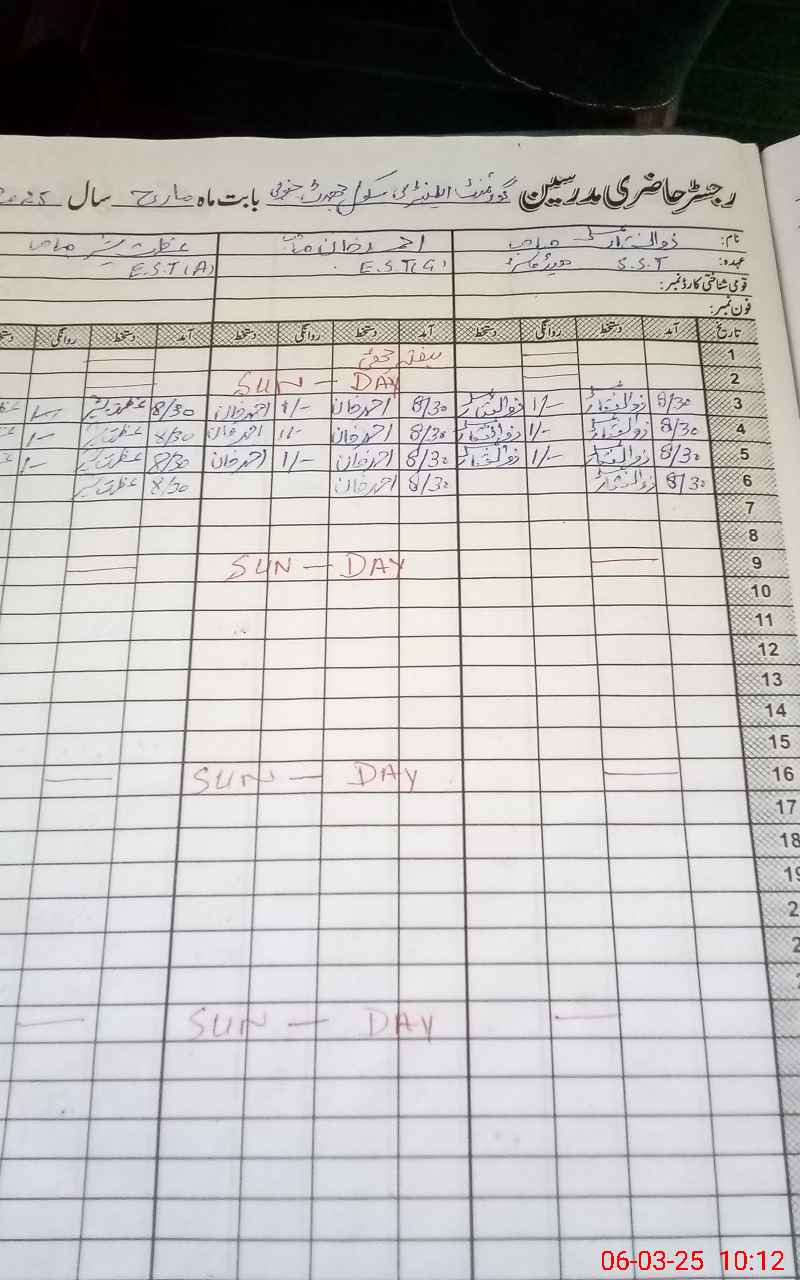 رجسٹر حاضری مدرسین گورنمنٹ ایلیمنٹری سکول جنوبی بابت ماہ مارچ سال 2025
نام: ذوالفقار صاحب احمد خان صاحب عظمت شیر صاحب
عہدہ: S.S.T ہیڈ ماسٹر E.S.T(G) E.S.T(A)
قومی شناختی کارڈ نمبر:
فون نمبر:
تاریخ آمد دستخط روانگی دستخط آمد دستخط روانگی دستخط آمد دستخط روانگی دستخط
1 ہفتہ چھٹی
2 SUN — DAY
3 8/30 ذوالفقار 1/- ذوالفقار 8/30 احمد خان 1/- احمد خان 8/30 عظمت شیر 1/-
4 8/30 ذوالفقار 1/- ذوالفقار 8/30 احمد خان 1/- احمد خان 8/30 عظمت شیر 1/-
5 8/30 ذوالفقار 1/- ذوالفقار 8/30 احمد خان 1/- احمد خان 8/30 عظمت شیر 1/-
6 8/30 ذوالفقار 8/30 احمد خان 8/30 عظمت شیر
7
8
9 SUN — DAY
10
11
12
13
14
15
16 SUN — DAY
17
18
19
2
2
SUN — DAY
06-03-25 10:12